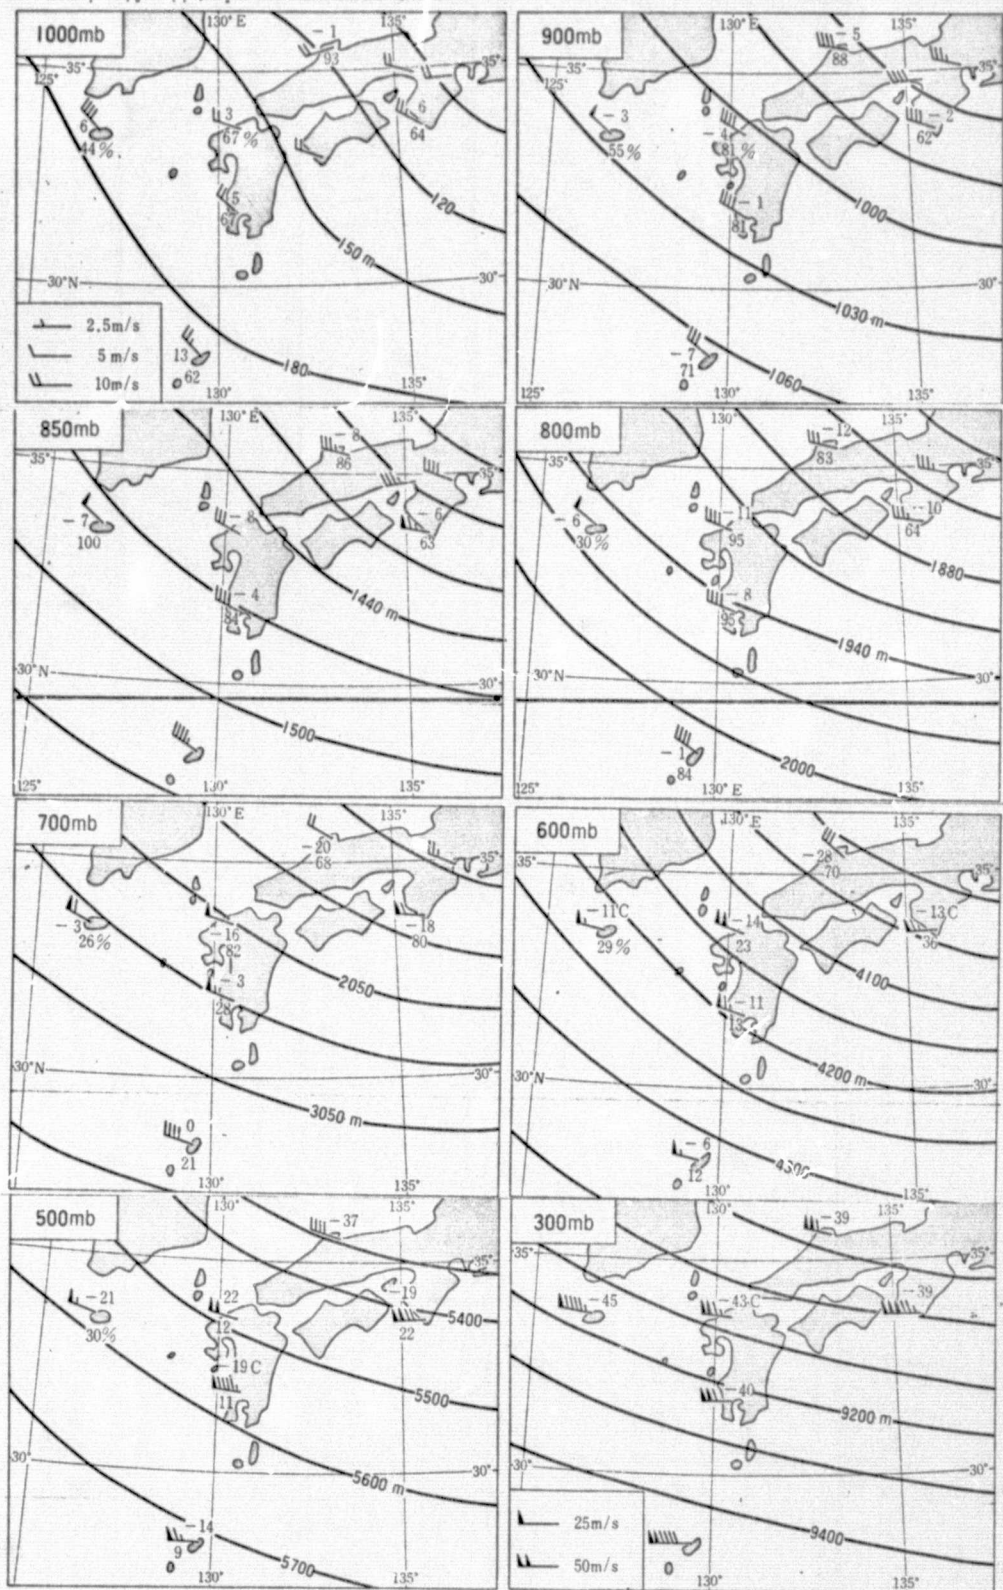 1000mb
130°E
135°
-1
93
35°
35°
125°
3
67%
6
64
6
44%
5
67
120
150 m
30°N
30°
2.5m/s
5 m/s
10m/s
13
62
180
130°
135°
900mb
130°E
135°
-5
88
35°
35°
-3
55%
-4
81%
-2
62
-1
81
1000
30°N
30°
1030 m
-7
71
1060
125°
130°
135°
850mb
130°E
135°
-8
86
35°
-7
100
-8
-6
63
-4
84
1440 m
30°N
30°
1500
125°
130°
135°
800mb
130°E
135°
-12
83
35°
-6
30%
-11
95
-10
64
-8
95
1880
1940 m
30°N
30°
-1
84
2000
125°
130°E
135°
700mb
130°E
135°
-20
68
35°
-3
26%
-16
82
-18
80
-3
28
2050
30°N
30°
3050 m
0
21
130°
135°
600mb
130°E
135°
-28
70
35°
35°
-11C
29%
-14
23
-13C
36
-11
4100
4200 m
30°N
30°
-6
12
4300
130°
135°
500mb
130°
135°
-37
35°
-21
30%
22
12
-19
22
5400
-19C
11
5500
30°
30°
5600 m
-14
9
5700
130°
135°
300mb
130°
135°
-39
35°
35°
-45
-43C
-39
-40
9200 m
30°
30°
25m/s
50m/s
9400
130°
135°